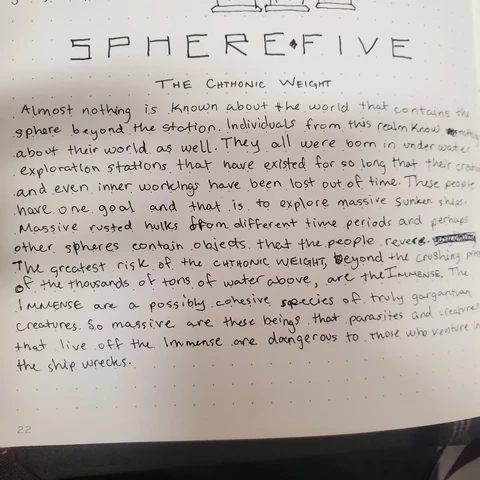 SPHERE•FIVE
THE CHTHONIC WEIGHT
Almost nothing is known about the world that contains the
sphere beyond the station. Individuals from this realm know
about their world as well. They all were born in under water
exploration stations that have existed for so long that their
and even inner workings have been lost out of time. These people
have one goal and that is to explore massive sunken ships.
Massive rusted hulks from different time periods and perhaps
other spheres contain objects that the people revere.
The greatest risk of the CHTHONIC WEIGHT, beyond the crushing
of the thousands of tons of water above, are the IMMENSE. The
IMMENSE are a possibly cohesive species of truly gargantuan
creatures. So massive are these beings that parasites and creatures
that live off the Immense are dangerous to those who venture in
the ship wrecks.
22